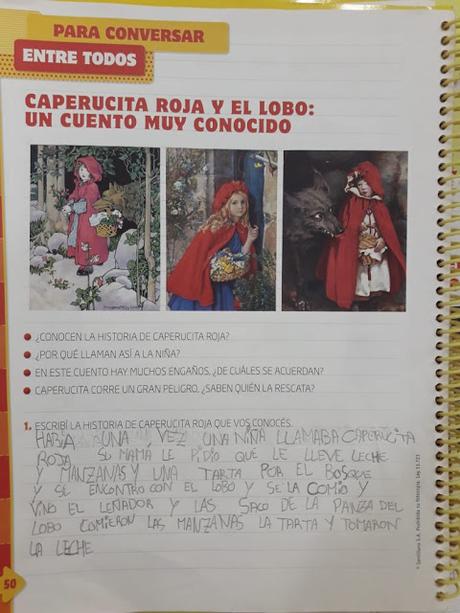 PARA CONVERSAR
ENTRE TODOS
CAPERUCITA ROJA Y EL LOBO:
UN CUENTO MUY CONOCIDO
¿CONOCEN LA HISTORIA DE CAPERUCITA ROJA?
¿POR QUÉ LLAMAN ASÍ A LA NIÑA?
EN ESTE CUENTO HAY MUCHOS ENGAÑOS. ¿DE CUÁLES SE ACUERDAN?
CAPERUCITA CORRE UN GRAN PELIGRO. ¿SABEN QUIÉN LA RESCATA?
1. ESCRIBÍ LA HISTORIA DE CAPERUCITA ROJA QUE VOS CONOCÉS.
HABIA UNA VEZ UNA NIÑA LLAMABA CAPERUCITA
ROJA SU MAMÁ LE PIDIO QUE LE LLEVE LECHE
Y MANZANAS Y UNA TARTA POR EL BOSQUE
Y SE ENCONTRO CON EL LOBO Y SE LA COMIO Y
VINO EL LEÑADOR Y LAS SACO DE LA PANZA DEL
LOBO COMIERON LAS MANZANAS LA TARTA Y TOMARON
LA LECHE
50
© Santillana S.A. Prohibida su fotocopia. Ley 11.723